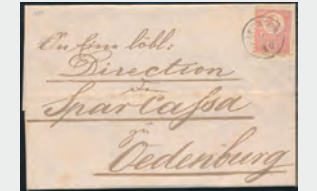 An Eine löbl:
Direction
der
Spar Cassa
zu
Oedenburg